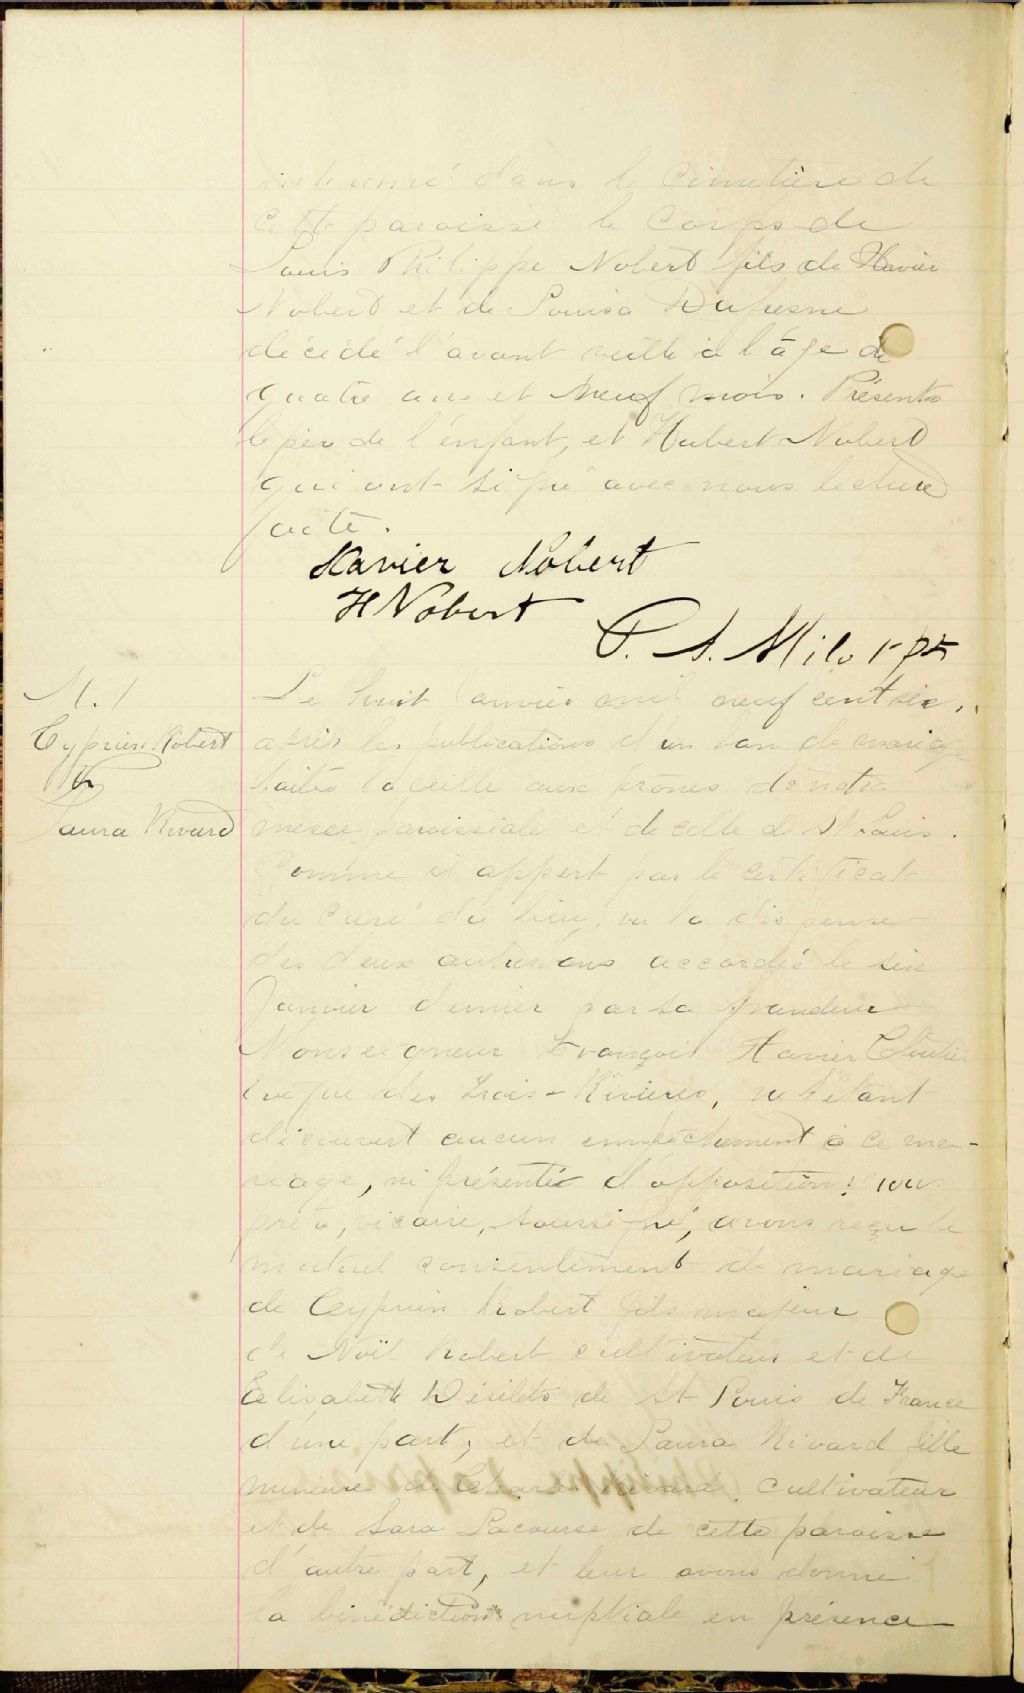 inhumé dans le cimetière de
cette paroisse le corps de
Louis Philippe Nobert fils de Xavier
Nobert et de Louisa Dufresne
décédé l'avant veille à l'âge de
quatre ans et neuf mois. Présents
le père de l'enfant, et Hubert Nobert
qui ont signé avec nous lecture
faite.
Xavier Nobert
H Nobert
P. A. Milo
M. 1
Cyprien Robert
&
Laura Rivard
Le huit janvier mil neuf cent six,
après les publications d'un ban de mariage
faites la veille aux prônes de notre
messe paroissiale et de celle de St Louis.
Comme il appert par le certificat
du curé du lieu, vu la dispense
des deux autres bans accordée le six
Janvier dernier par sa grandeur
Monseigneur François Xavier Cloutier
évêque des Trois-Rivières, ne s'étant
découvert aucun empêchement à ce ma-
riage, ni présenté d'opposition; nous
prêtre, vicaire, soussigné, avons reçu le
mutuel consentement de mariage
de Cyprien Robert fils majeur
de Noël Robert cultivateur et de
Elisabeth Désilets de St Louis de France
d'une part, et de Laura Rivard fille
mineure de Charles Rivard cultivateur
et de Sara Lacourse de cette paroisse
d'autre part, et leur avons donné
la bénédiction nuptiale en présence